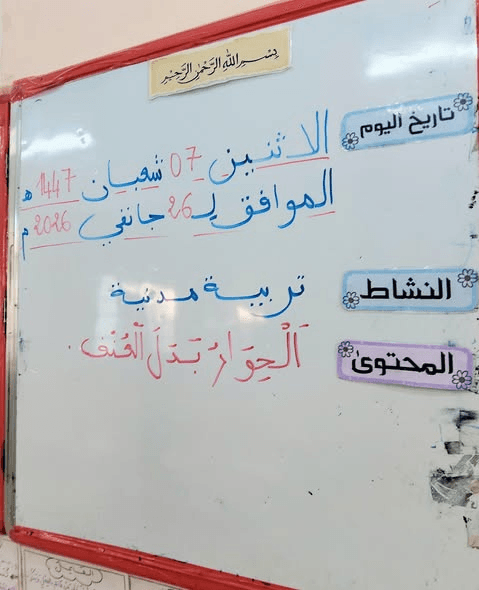 بسم الله الرحمن الرحيم
تاريخ اليوم
الاثنين 07 شعبان 1447 هـ
الموافق لـ 26 جانفي 2026 م
النشاط
تربية مدنية
المحتوى
اَلْحِوَارُ بَدَلَ الْعُنْف.